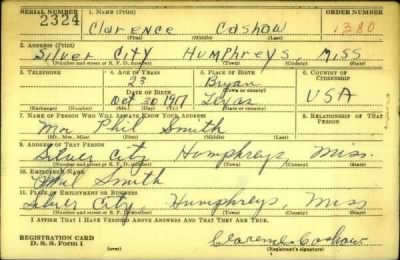 SERIAL NUMBER 1. NAME (Print) ORDER NUMBER
2324 Clarence Cashaw 1380
(First) (Middle) (Last)
2. ADDRESS (Print)
Silver City Humphreys Miss
(Number and street or R. F. D. number) (Town) (County) (State)
3. TELEPHONE 4. AGE IN YEARS 5. PLACE OF BIRTH 6. COUNTRY OF CITIZENSHIP
23 Bryan
DATE OF BIRTH (Town or county)
Oct 30 1917 Texas USA
(Exchange) (Number) (Mo.) (Day) (Yr.) (State or country)
7. NAME OF PERSON WHO WILL ALWAYS KNOW YOUR ADDRESS 8. RELATIONSHIP OF THAT PERSON
Mr. Phil Smith
(Mr., Mrs., Miss) (First) (Middle) (Last)
9. ADDRESS OF THAT PERSON
Silver City Humphreys, Miss.
(Number and street or R. F. D. number) (Town) (County) (State)
10. EMPLOYER'S NAME
Phil Smith
11. PLACE OF EMPLOYMENT OR BUSINESS
Silver City, Humphreys, Miss
(Number and street or R. F. D. number) (Town) (County) (State)
I AFFIRM THAT I HAVE VERIFIED ABOVE ANSWERS AND THAT THEY ARE TRUE.
REGISTRATION CARD
D. S. S. Form 1 (over) Clarence Cashaw
(Registrant's signature)